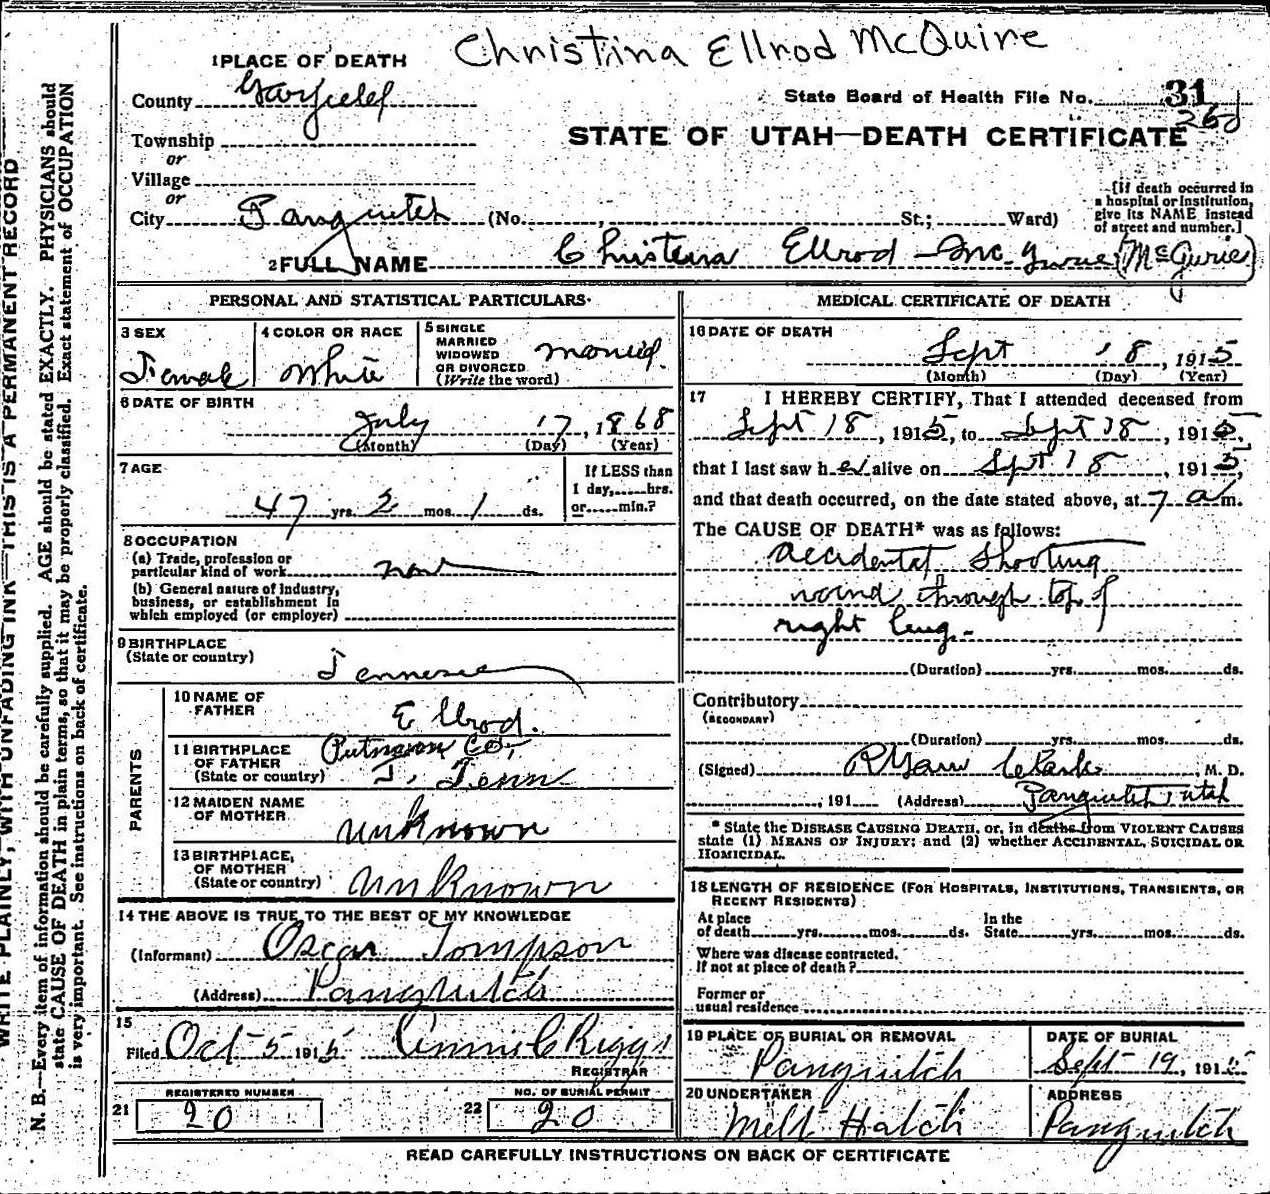 Christina Ellrod McQuire
1 PLACE OF DEATH
County Garfield
State Board of Health File No. 31
26d
Township
or
Village
or
STATE OF UTAH—DEATH CERTIFICATE
City Panguitch (No. , St.; Ward)
[If death occurred in a hospital or institution, give its NAME instead of street and number.]
2 FULL NAME Christena Ellrod - Mc. Gurie (McGurie)
PERSONAL AND STATISTICAL PARTICULARS
3 SEX
Female
4 COLOR OR RACE
White
5 SINGLE
MARRIED
WIDOWED
OR DIVORCED
(Write the word)
married.
6 DATE OF BIRTH
July 17, 1868
(Month) (Day) (Year)
7 AGE
47 yrs. 2 mos. 1 ds.
If LESS than
1 day, hrs.
or min.?
8 OCCUPATION
(a) Trade, profession or
particular kind of work
(b) General nature of industry,
business, or establishment in
which employed (or employer)
9 BIRTHPLACE
(State or country) Tennessee
PARENTS
10 NAME OF
FATHER Ellrod.
11 BIRTHPLACE
OF FATHER
(State or country)
Putnam Co,
Tenn
12 MAIDEN NAME
OF MOTHER unknown
13 BIRTHPLACE,
OF MOTHER
(State or country) unknown
14 THE ABOVE IS TRUE TO THE BEST OF MY KNOWLEDGE
(Informant) Oscar Tompson
(Address) Panguitch
15
Filed Oct 5 1915 Annie C Riggs
REGISTRAR
REGISTERED NUMBER
21 20
NO. OF BURIAL PERMIT
22 20
MEDICAL CERTIFICATE OF DEATH
16 DATE OF DEATH
Sept 18, 1915
(Month) (Day) (Year)
17 I HEREBY CERTIFY, That I attended deceased from
Sept 18, 1915, to Sept 18, 1915,
that I last saw her alive on Sept 18, 1915,
and that death occurred, on the date stated above, at 7 a m.
The CAUSE OF DEATH* was as follows:
accidental shooting
wound through top of
right lung.
(Duration) yrs. mos. ds.
Contributory
(SECONDARY)
(Duration) yrs. mos. ds.
(Signed) Clark, M. D.
, 191 (Address) Panguitch Utah
* State the DISEASE CAUSING DEATH, or, in deaths from VIOLENT CAUSES
state (1) MEANS OF INJURY; and (2) whether ACCIDENTAL, SUICIDAL OR
HOMICIDAL.
18 LENGTH OF RESIDENCE (FOR HOSPITALS, INSTITUTIONS, TRANSIENTS, OR
RECENT RESIDENTS)
At place In the
of death yrs. mos. ds. State yrs. mos. ds.
Where was disease contracted.
If not at place of death?
Former or
usual residence
19 PLACE OF BURIAL OR REMOVAL
Panguitch
DATE OF BURIAL
Sept 19, 1915
20 UNDERTAKER
Melt Hatch
ADDRESS
Panguitch
READ CAREFULLY INSTRUCTIONS ON BACK OF CERTIFICATE
WRITE PLAINLY, WITH UNFADING INK—THIS IS A PERMANENT RECORD
N. B.—Every item of information should be carefully supplied. AGE should be stated EXACTLY. PHYSICIANS should
state CAUSE OF DEATH in plain terms, so that it may be properly classified. Exact statement of OCCUPATION
is very important. See instructions on back of certificate.